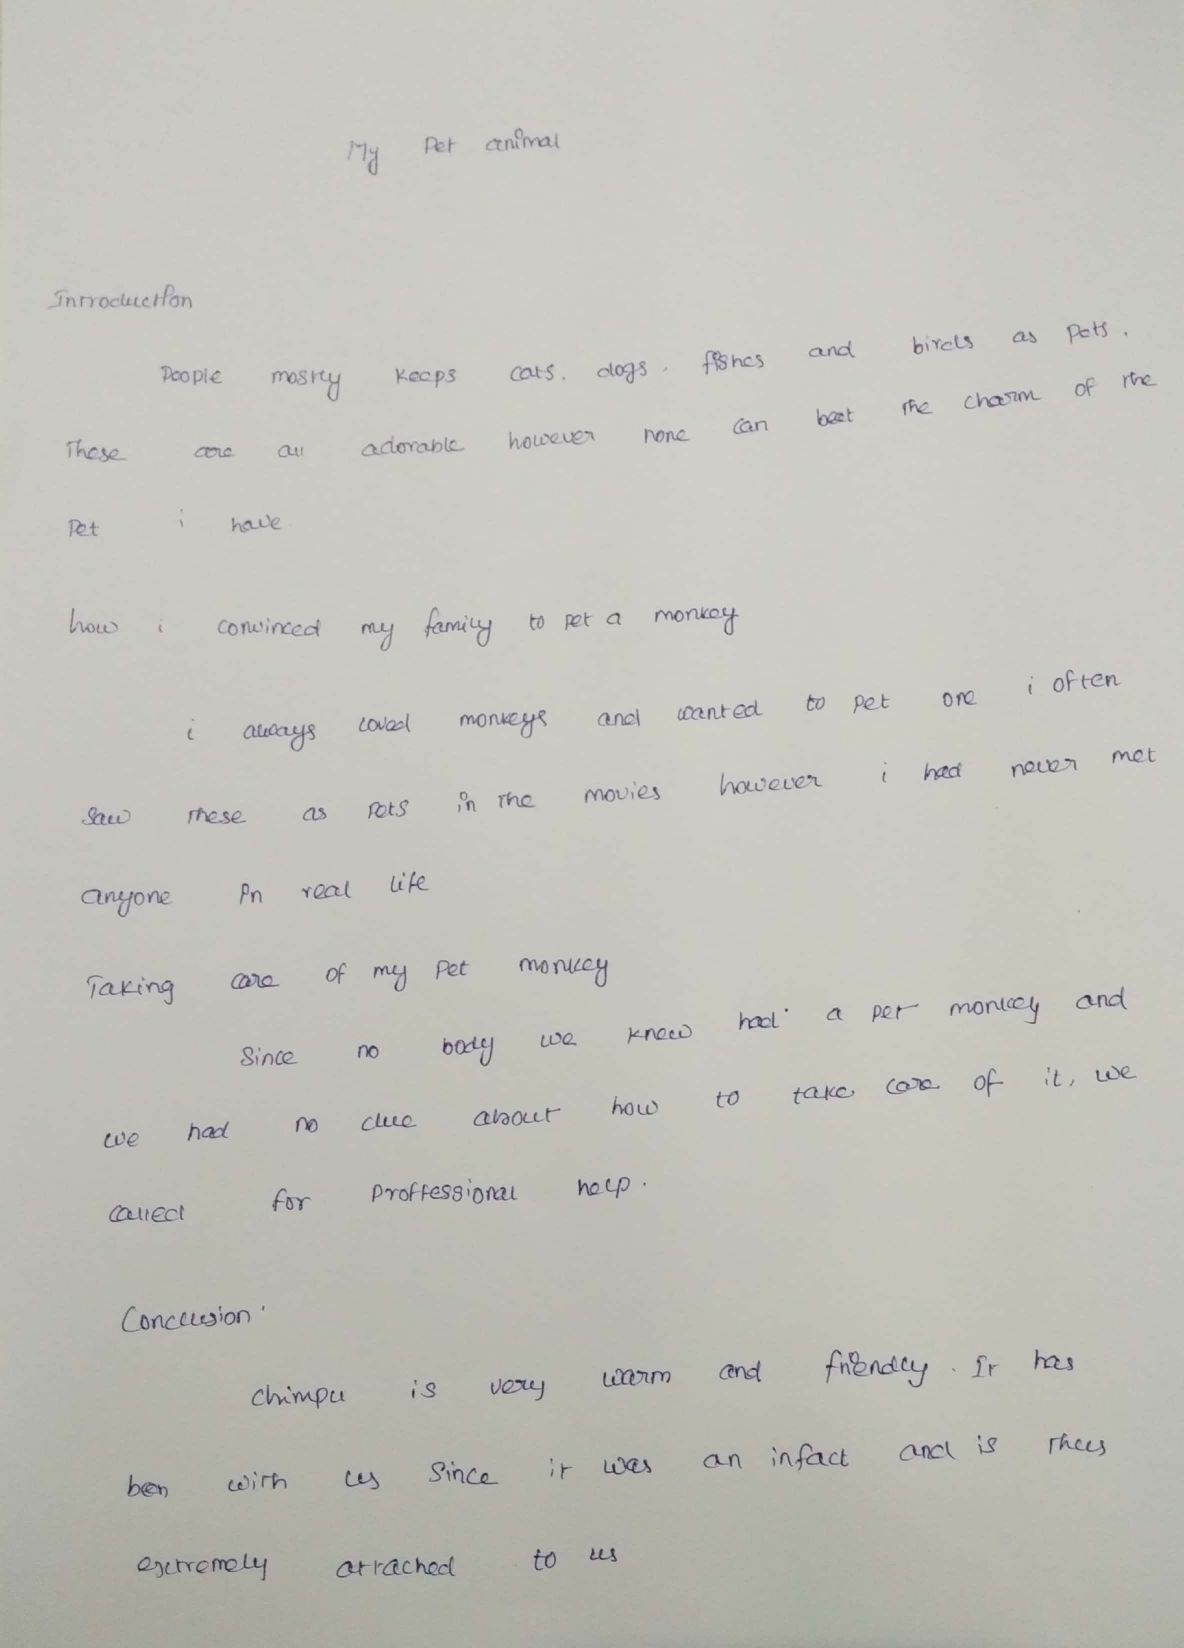 My Pet animal
Introduction
People mostly keeps cats. dogs. fishes and birds as pets.
These are all adorable however none can beat the charm of the
Pet i have
how i convinced my family to pet a monkey
i always loved monkeys and wanted to pet one i often
Saw these as pets in the movies however i had never met
anyone in real life
Taking care of my pet monkey
Since no body we knew had a pet monkey and
we had no clue about how to take care of it, we
called for Proffessional help.
Conclusion
Chimpu is very warm and friendly. It has
been with us Since it was an infact and is thus
extremely attached to us